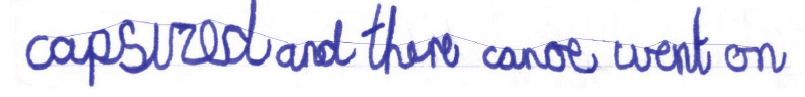 capsized and there canoe went on